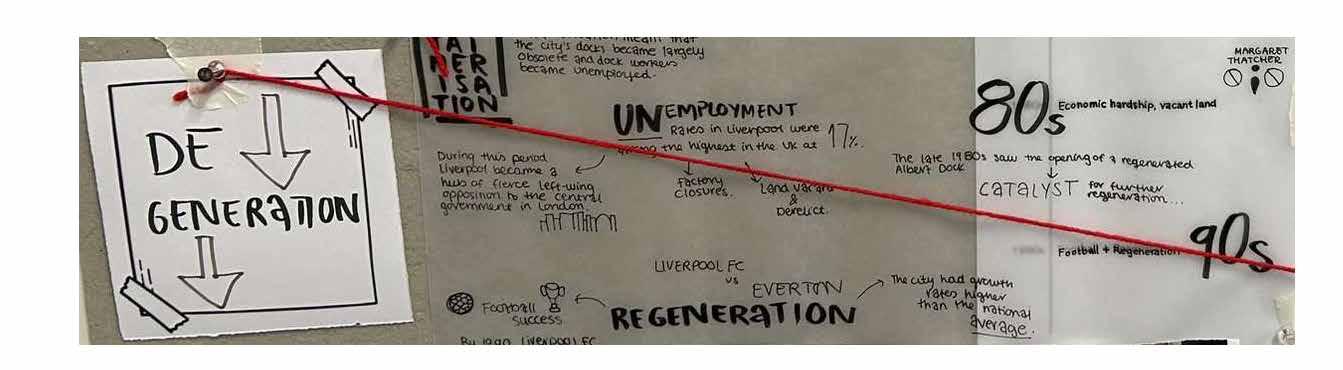 DE
GENERATION
NER
ISA
TION
the city's docks became largely
obsolete and dock workers
became unemployed.
UNEMPLOYMENT
Rates in Liverpool were
among the highest in the UK at 17%.
During this period
Liverpool became a
hub of fierce left-wing
opposition to the central
government in London
factory
closures.
Land vacant
&
Derelict.
LIVERPOOL FC
vs
EVERTON
Football
success
REGENERATION
The city had growth
rates higher
than the national
average.
MARGARET
THATCHER
80s
Economic hardship, vacant land
The late 1980s saw the opening of a regenerated
Albert Dock
CATALYST for further
regeneration...
Football + Regeneration
90s